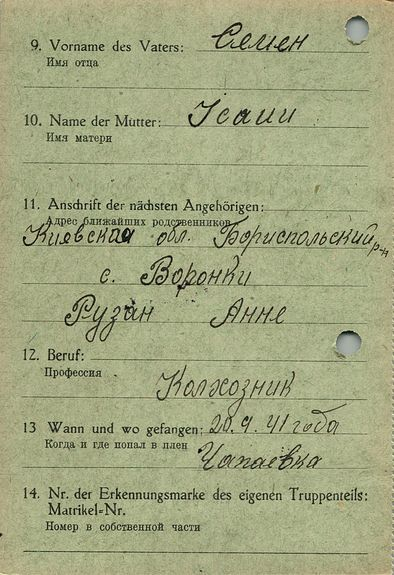 9. Vorname des Vaters: Семен
Имя отца
10. Name der Mutter: Исаии
Имя матери
11. Anschrift der nächsten Angehörigen:
Адрес ближайших родственников
Киевская обл. Бориспольский р-н
с. Воронки
Рузан Анне
12. Beruf:
Профессия
Колхозник
13 Wann und wo gefangen: 20.9.41 года
Когда и где попал в плен
Чапаевка
14. Nr. der Erkennungsmarke des eigenen Truppenteils:
Matrikel-Nr.
Номер в собственной части